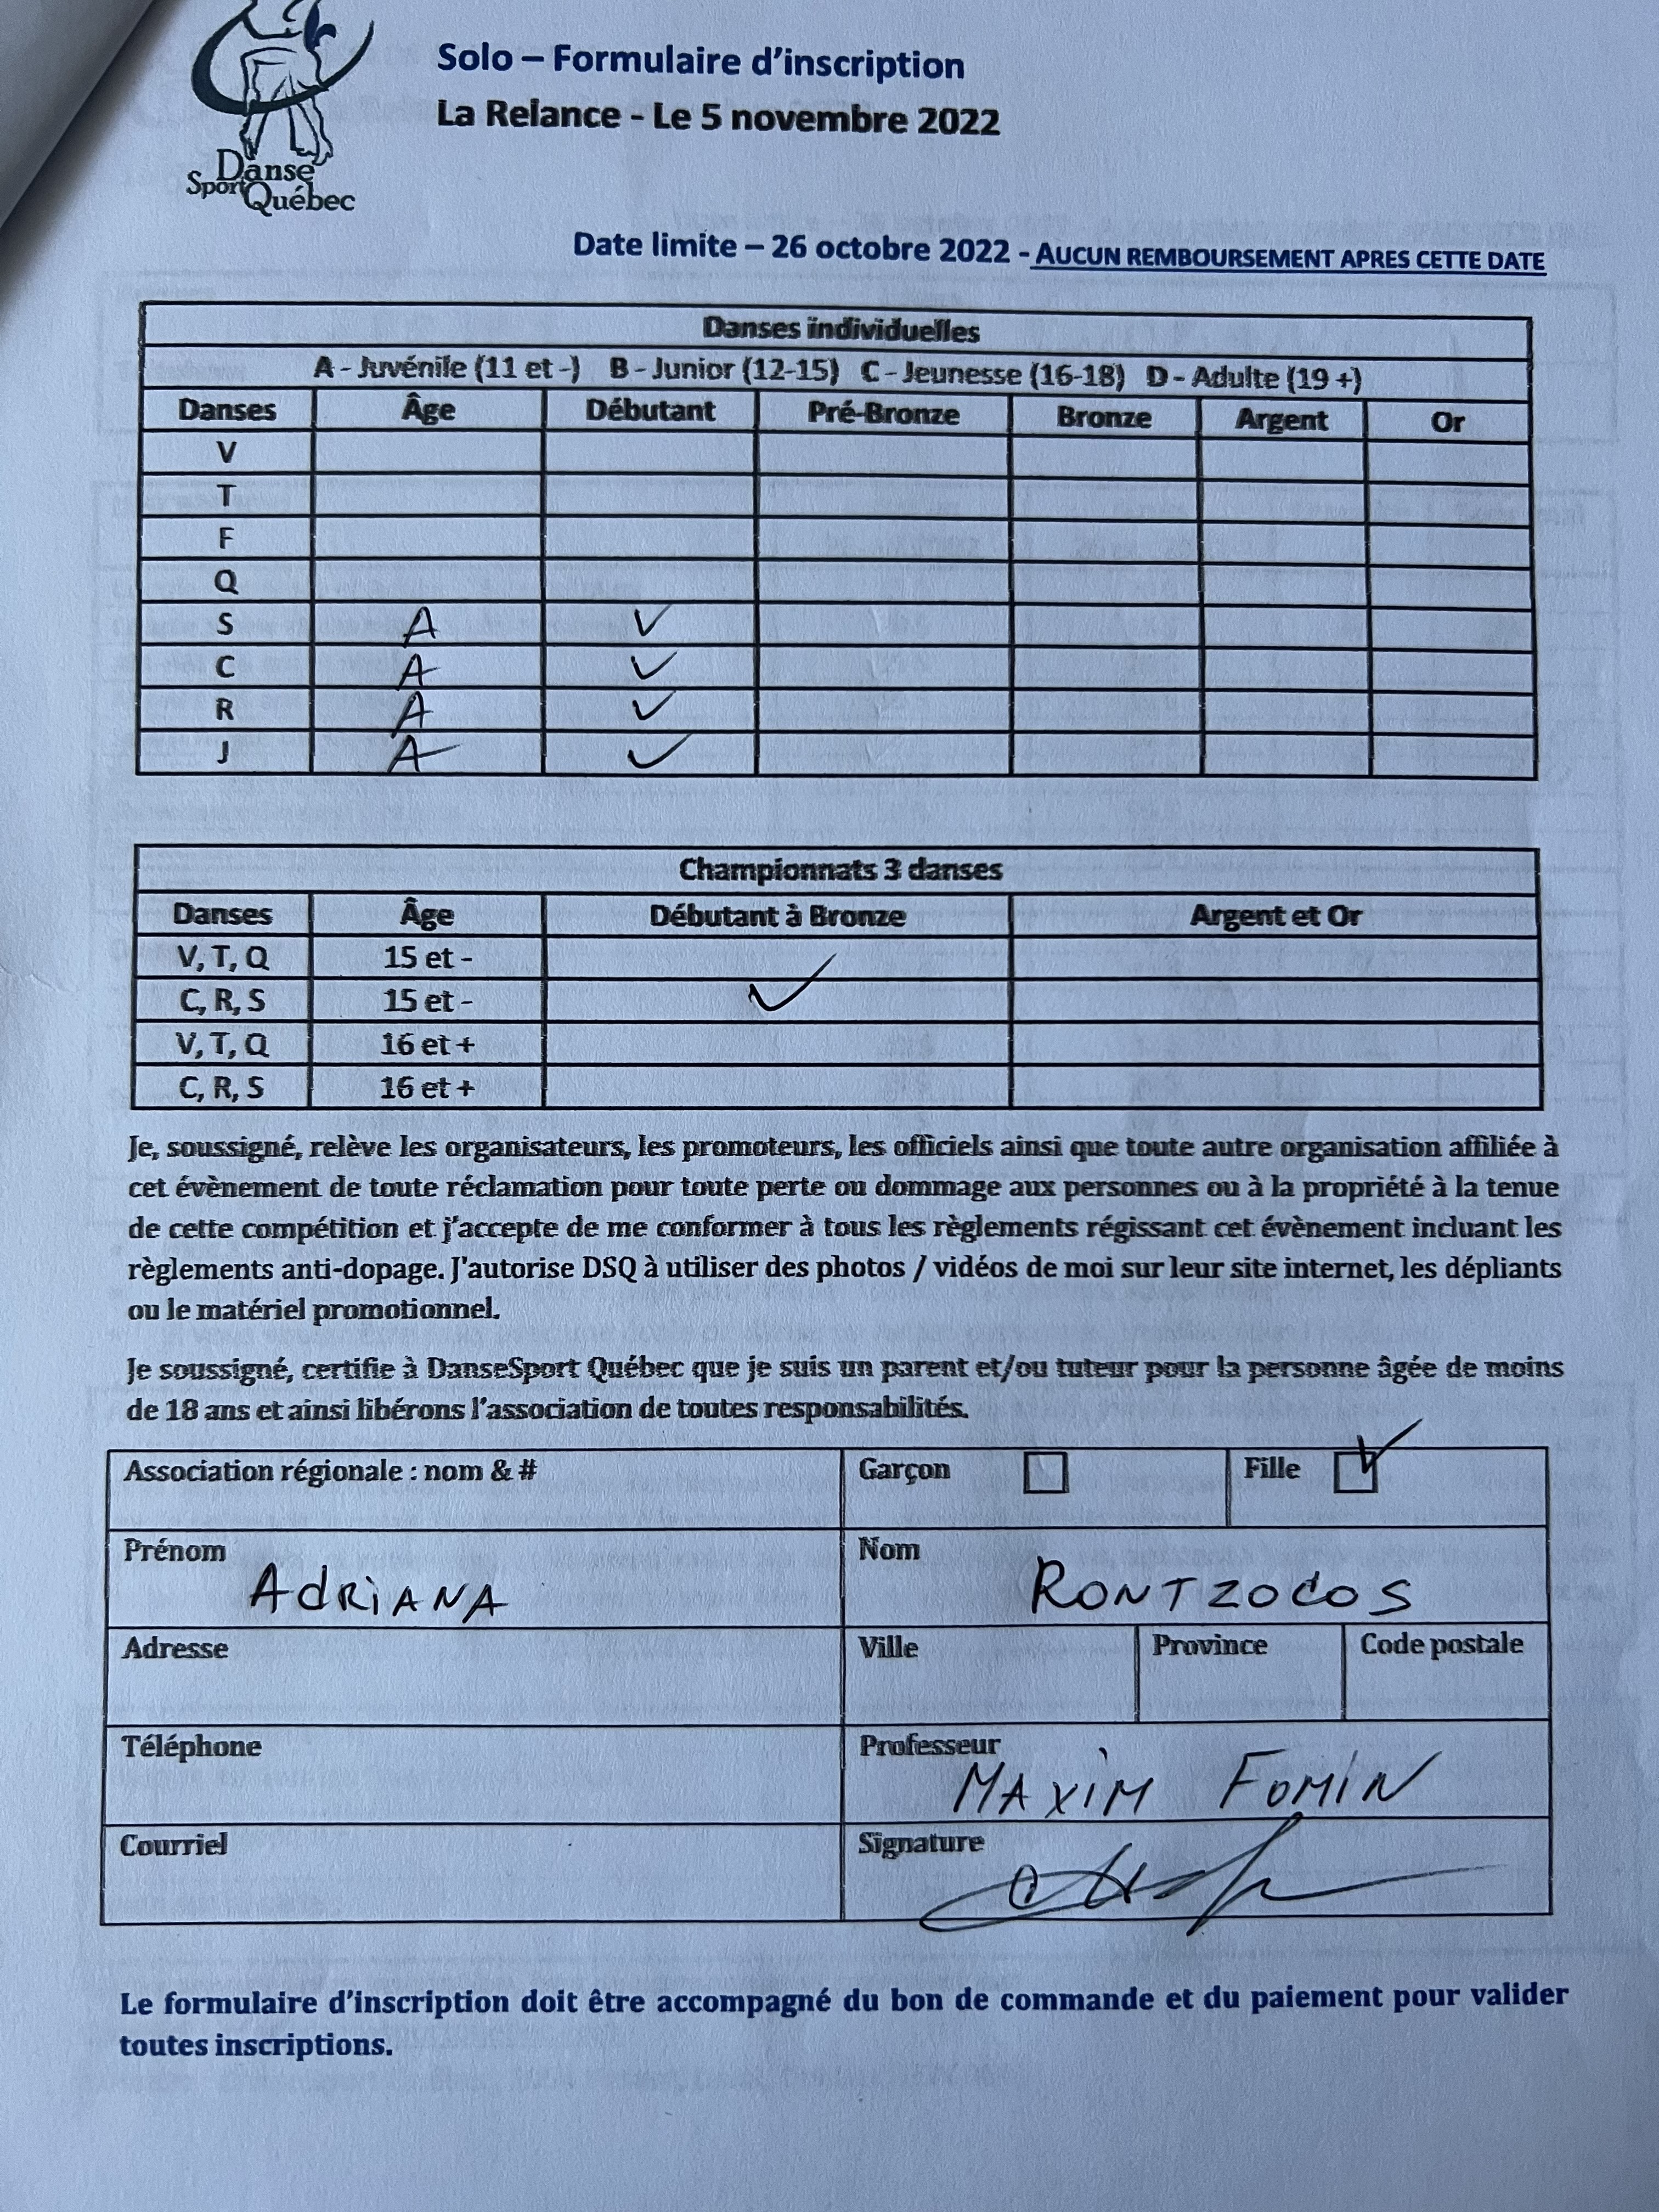 Solo – Formulaire d'inscription
La Relance - Le 5 novembre 2022
Danse
Sport Québec
Date limite – 26 octobre 2022 - AUCUN REMBOURSEMENT APRES CETTE DATE
Danses individuelles
A - Juvénile (11 et -) B - Junior (12-15) C - Jeunesse (16-18) D - Adulte (19 +)
Danses Âge Débutant Pré-Bronze Bronze Argent Or
V
T
F
Q
S A ✓
C A ✓
R A ✓
J A ✓
Championnats 3 danses
Danses Âge Débutant à Bronze Argent et Or
V, T, Q 15 et -
C, R, S 15 et - ✓
V, T, Q 16 et +
C, R, S 16 et +
Je, soussigné, relève les organisateurs, les promoteurs, les officiels ainsi que toute autre organisation affiliée à
cet évènement de toute réclamation pour toute perte ou dommage aux personnes ou à la propriété à la tenue
de cette compétition et j'accepte de me conformer à tous les règlements régissant cet évènement incluant les
règlements anti-dopage. J'autorise DSQ à utiliser des photos / vidéos de moi sur leur site internet, les dépliants
ou le matériel promotionnel.
Je soussigné, certifie à DanseSport Québec que je suis un parent et/ou tuteur pour la personne âgée de moins
de 18 ans et ainsi libérons l'association de toutes responsabilités.
Association régionale : nom & # Garçon ☐ Fille ☑
Prénom Nom
AdRiANA RONTZOCOS
Adresse Ville Province Code postale
Téléphone Professeur
MAXIM FOMIN
Courriel Signature
Le formulaire d'inscription doit être accompagné du bon de commande et du paiement pour valider
toutes inscriptions.